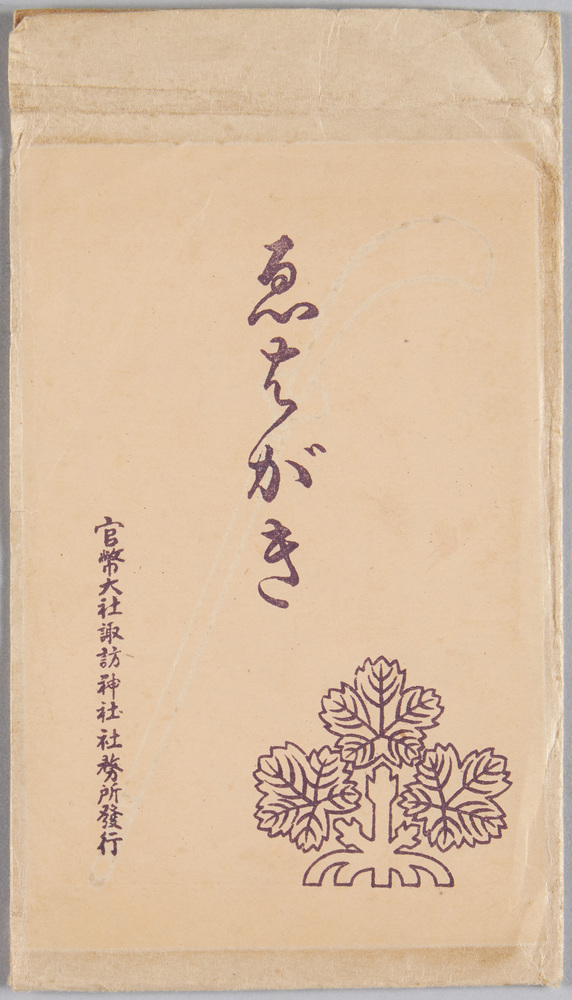 ゑはがき
官幣大社諏訪神社社務所發行